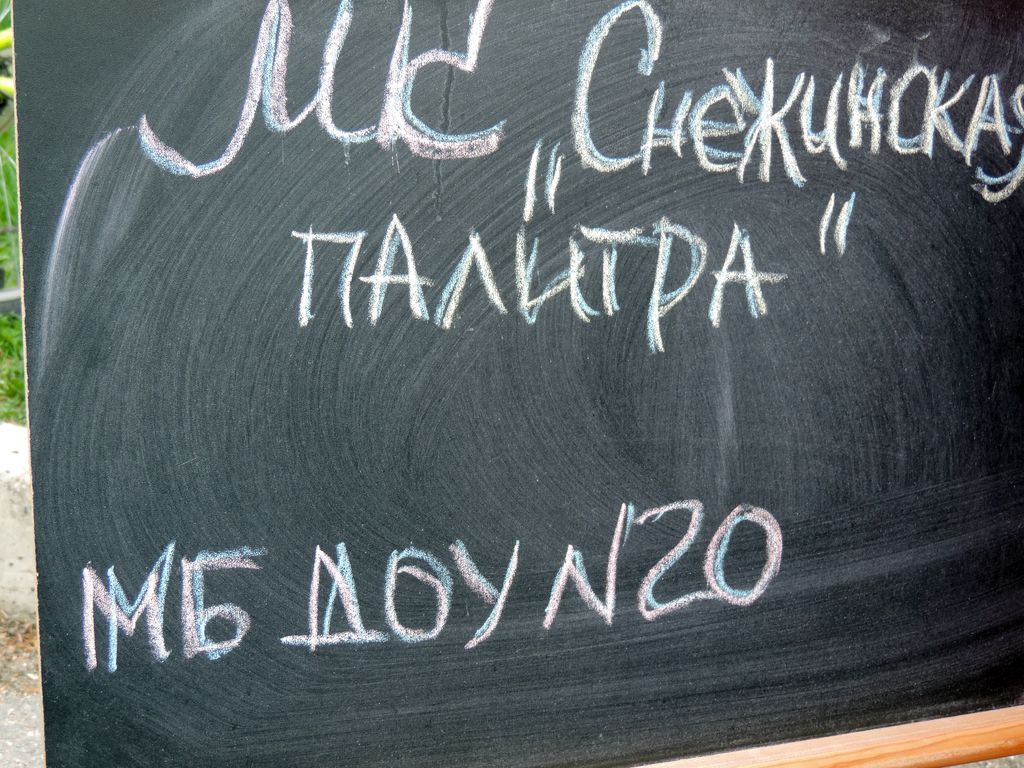 МС „Снежинская
ПАЛИТРА"
МБДОУ N20